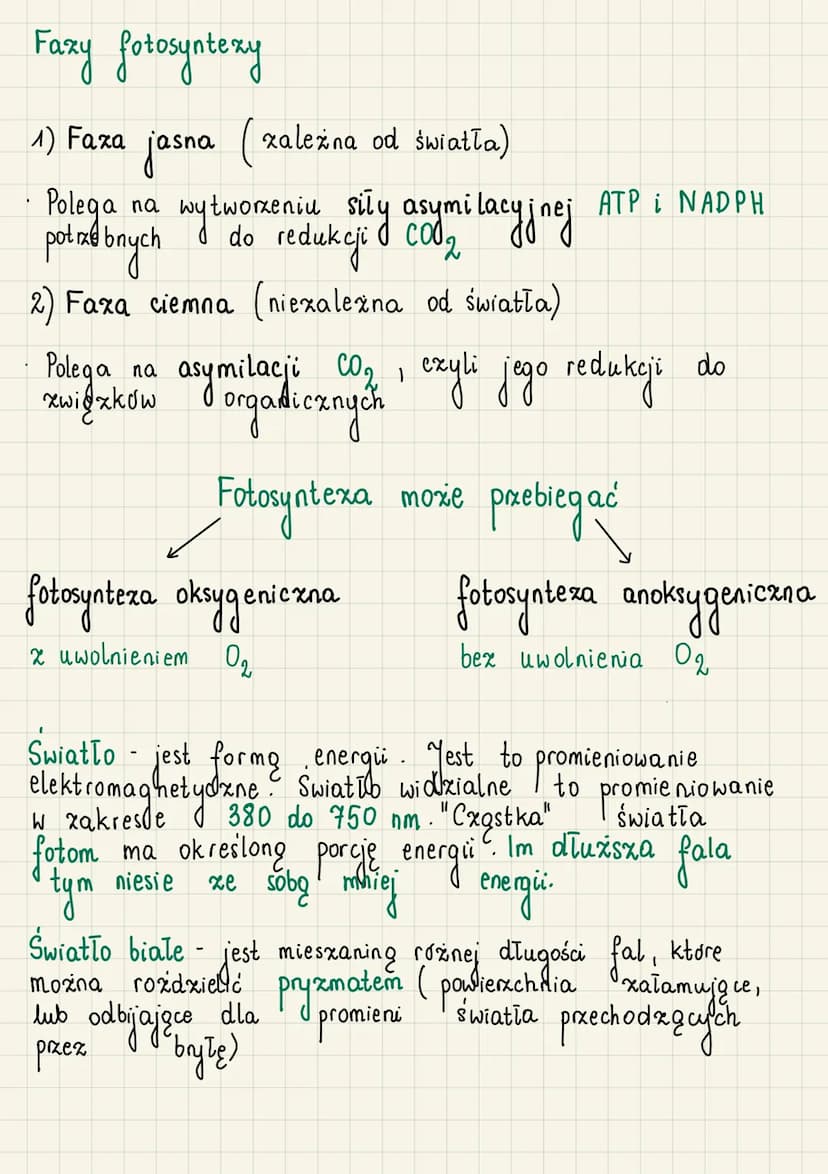 Fazy fotosyntezy
1) Faza jasna (zależna od światła)
· Polega na wytworzeniu siły asymilacyjnej ATP i NADPH
potrzebnych do redukcji CO₂
2) Faza ciemna (niezależna od światła)
· Polega na asymilacji CO₂, czyli jego redukcji do
związków organicznych
Fotosynteza może przebiegać
fotosynteza oksygeniczna
z uwolnieniem O₂
fotosynteza anoksygeniczna
bez uwolnienia O₂
Światło - jest formą energii. Jest to promieniowanie
elektromagnetyczne. Światło widzialne to promieniowanie
w zakresie 380 do 750 nm. "Cząstka" światła
fotom ma określoną porcję energii. Im dłuższa fala
tym niesie ze sobą mniej energii.
Światło białe - jest mieszaniną różnej długości fal, które
można rozdzielić pryzmatem (powierzchnia załamujące,
lub odbijające dla promieni światła przechodzących
przez bryłę)